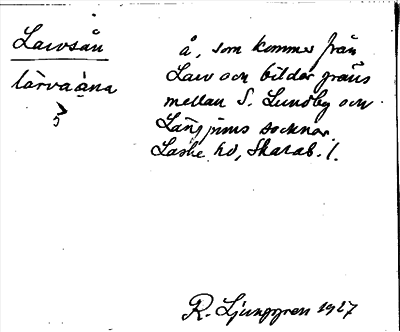 Lawsån
lárvaåna
5
å, som kommer från
Law och bildar gräns
mellan S. Lundby och
Långjums socknar.
Laske hd, Skarab. l.
R. Ljunggren 1927